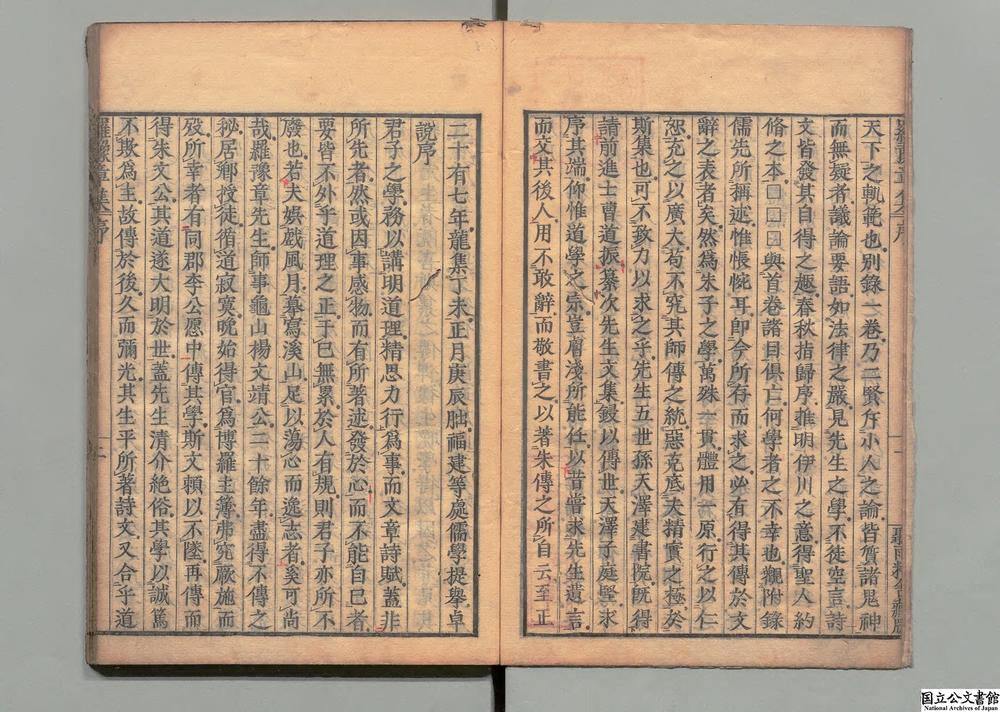 天下之軌範也別錄一卷乃二賢斥小人之論皆質諸鬼神
而無疑者議論要語如法律之嚴見先生之學不徒空言詩
文皆發其自得之趣春秋指歸序推明伊川之意得聖人約
脩之本□□□與首卷諸目俱亡何學者之不幸也觀附錄
儒先所稱述惟悵恍耳即今所存而求之必有得其傳於文
辭之表者矣然爲朱子之學萬殊一貫體用一原行之以仁
恕充之以廣大苟不究其師傳之統惡充底大精實之極於
斯集也可不致力以求之乎先生五世孫天澤建書院旣得
請前進士曹道振纂次先生文集鋟以傳世天澤于庭堅求
序其端仰惟道學之宗豈膚淺所能任以昔嘗求先生遺言
而文其後人用不敢辭而敬書之以著朱傳之所自云至正
二十有七年龍集丁未正月庚辰朏福建等處儒學提舉卓
說序
君子之學務以講明道理精思力行爲事而文章詩賦蓋非
所先者然或因事感物而有所著述發於心而不能自已者
要皆不外乎道理之正于已無累於人有規則君子亦所不
廢也若夫娛戲風月摹寫溪山足以蕩心而逸志者奚可尚
哉羅豫章先生師事龜山楊文靖公二十餘年盡得不傳之
秘居鄉授徒循道寂寞晚始得官爲博羅主簿弗究厥施而
歿所幸者有同郡李公愿中傳其學斯文賴以不墜再傳而
得朱文公其道遂大明於世蓋先生清介絶俗其學以誠篤
不欺爲主故傳於後久而彌光其生平所著詩文又合乎道
羅豫章集序
二
国立公文書館
National Archives of Japan